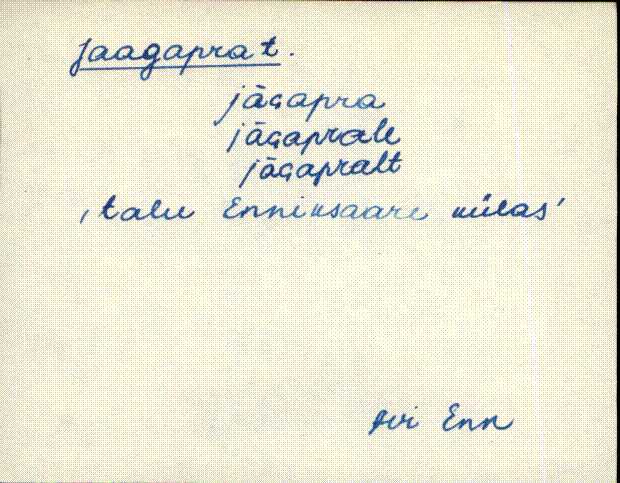 Jaagaprat.
jāGapra
jāGaprale
jāGapralt
'talu Enniksaare külas'
Avi Enn